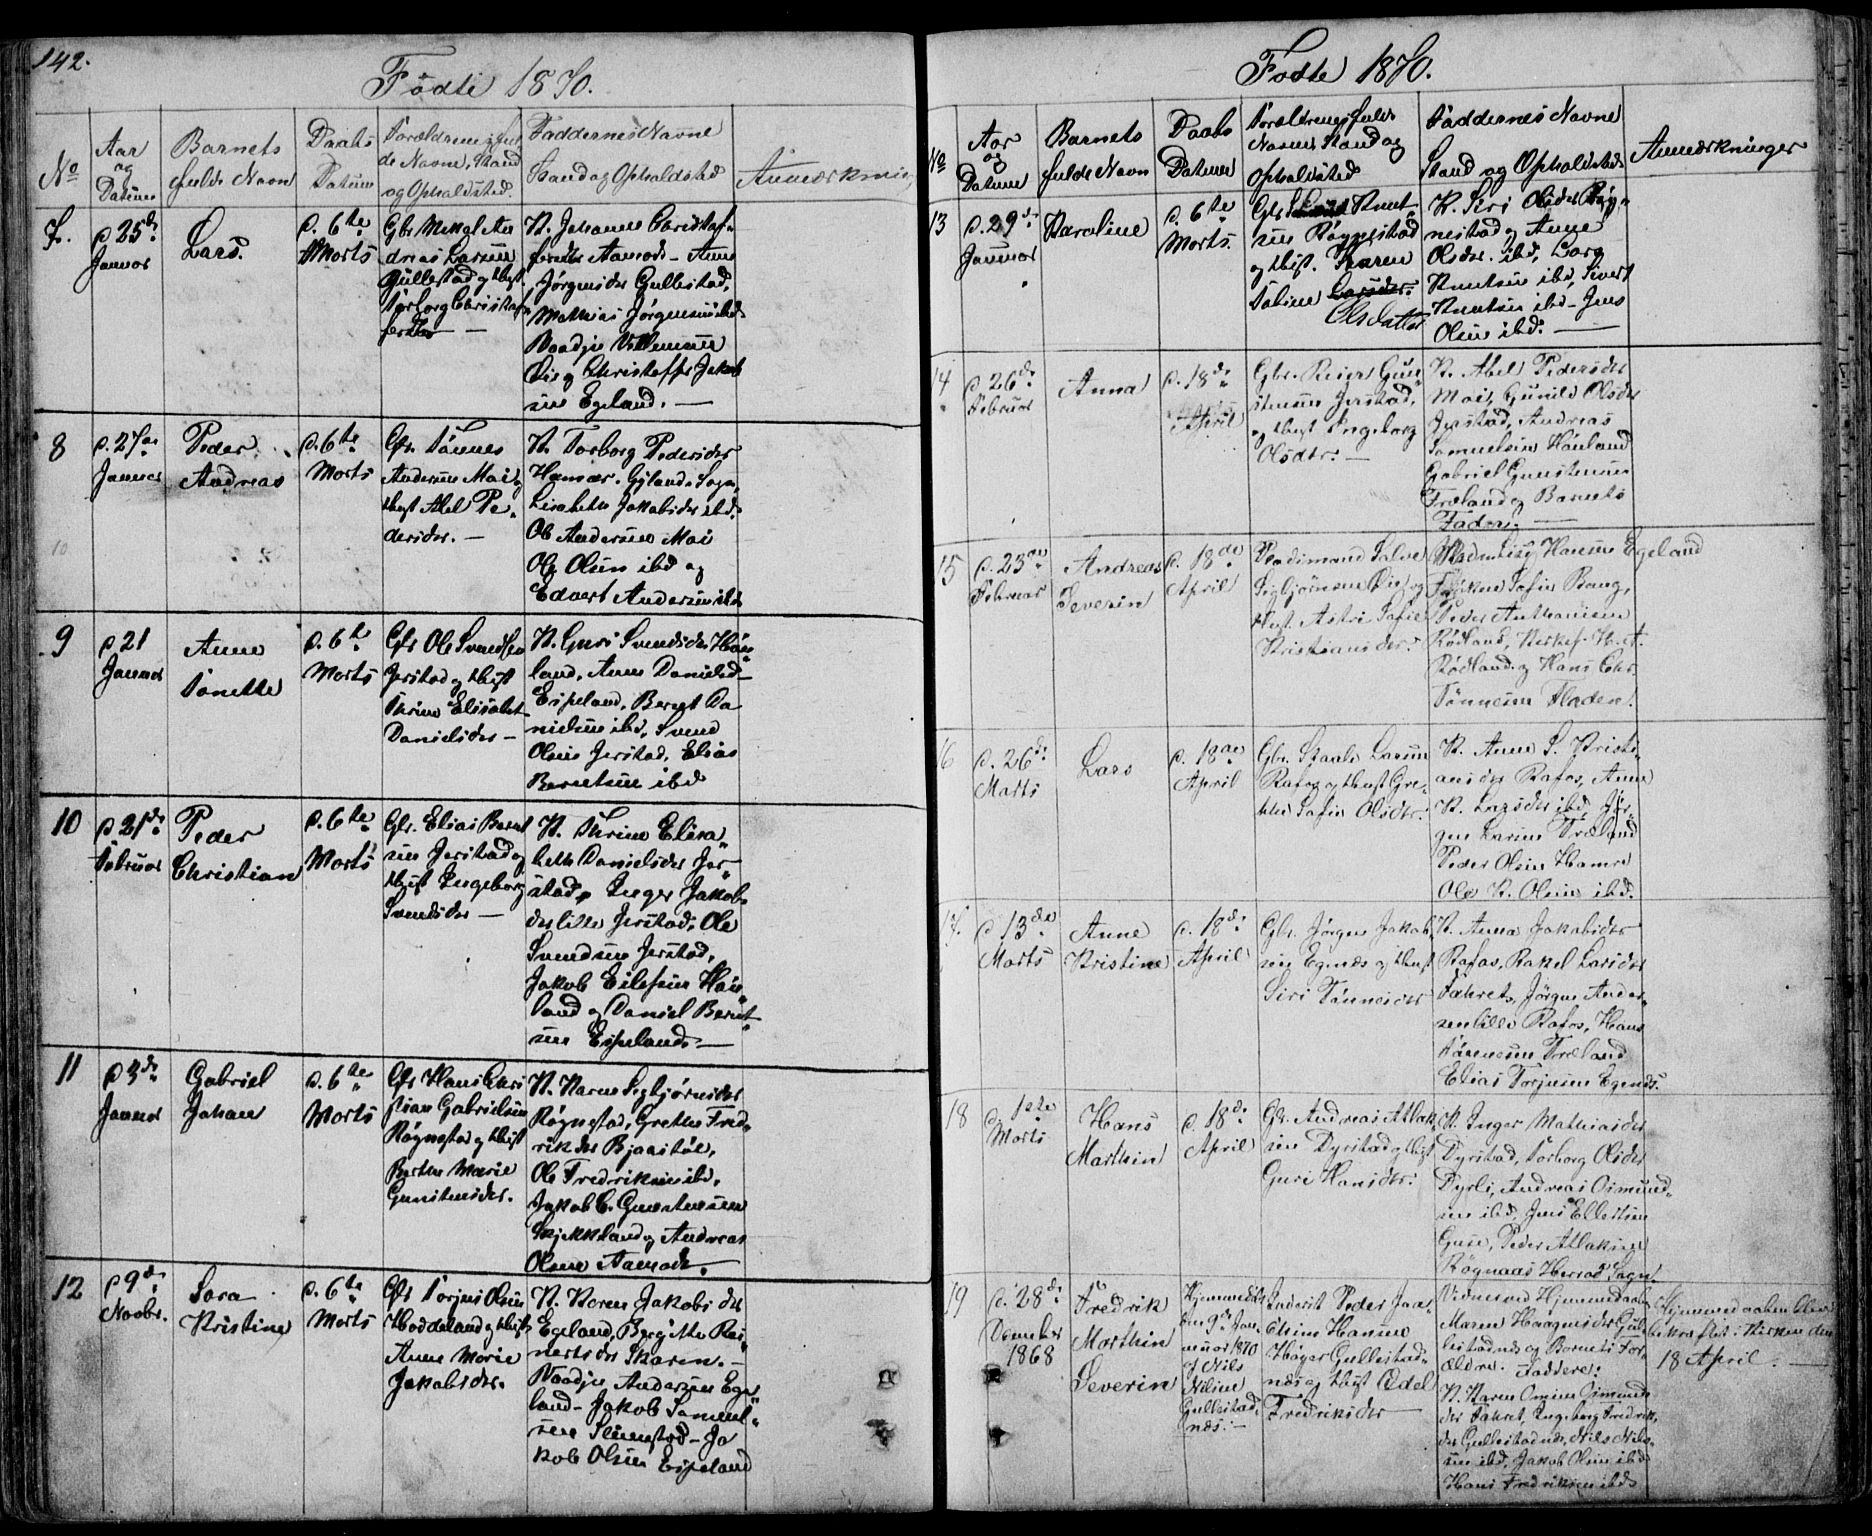 142.
Födte 1870.
No
Aar og Datum
Barnets fulde Navn
Daabs Datum
Forældrenes fulde Navne, Stand og Opholdsted.
Faddernes Navne Stand og Opholdsted
Anmærkning
7.
d. 25de
Januar
Lars.
d. 6te
Marts
Gbr
Andreas Larsen
Gullestad og Hust.
Torborg Christof-
fersdtr
K.
Aamodt - Anne
Jörgensdtr Gullestad,
Mathias Jörgensen ibd
og Christoffer Jakob
sen Egeland. -
8
d. 27de
Januar
Peder
Andreas
d. 6te
Marts
Gbr Tönnes
Andersen Moi og
Hust Abel Pe-
dersdtr. -
K. Torborg Pedersdtr
Hamar. Gyland Sogn,
Lisabeth Jakobsdtr ibd.
Ole Andersen Moi
Ole Olsen ibd og
Edvert Andersen ibd
9
d 21
Januar
Anne
Tonette
d. 6te
Marts
Gbr Ole Svendsen
Jerstad og Hust
Thrine Elisabet
Danielsdtr -
K. Guri Svendsdtr Hou-
land, Anne Danielsd-
Espeland, Bernt Da
nielsen ibd, Svend
Olsen Jerstad, Elias
Berntsen ibd
10
d 21de
Februar
Peder
Christian
d. 6te
Marts
Gbr. Elias Bernt
sen Jerstad og
Hust Ingeborg
Svendsdtr -
K. Thrine Elisa-
beth Danielsdtr Jer-
stad, Inger Jakobs
dtr lille Jerstad, Ole
Svendsen Jerstad,
Jakob Eilefsen Hou-
land og Daniel Bernt-
sen Espeland. -
11
d 3de
Januar
Gabriel
Johan
d. 6te
Marts
Gbr Hans Chri
stian Gabrielsen
Rögnestad og Hust
Berthe Marie
Gunstensdtr.
K. Karen Sigbjörnsdtr
Rögnestad, Grethe Fred-
riksdtr Bjaastöl,
Ole Fredriksen ibd,
Jakob C. Gunstensen
Skjekkeland og Andreas
Olsen Aamodt.
12
d 9de
Novbr.
Sara
Kristine
d. 6te
Marts
Gbr Torjus Olsen
Hoddeland og Hust
Anne Marie
Jakobsdtr.
K. Karen Jakobsdtr
Egeland, Bergitte Rei
nertsdtr Skaren. -
Andersen Ege-
land - Jakob Samuel-
sen - Ja
kob Olsen Espeland
Födte 1870.
No
Aar og Datum
Barnets fulde Navn
Daabs Datum
Forældrenes fulde Navne Stand og Opholdsted
Faddernes Navne Stand og Opholdsted
Anmærkninger
13
d. 29de
Januar
Karoline
d. 6te
Marts.
Gbr Knut-
sen Rögnestad
og Hust. Karen
Tobine Larsdtr.
Olsdatter
K. Siri Olsdtr Rög-
nestad og Anne
Olsdtr. ibd, Lars
Knutsen ibd, Sivert
Knutsen ibd - Jens
Olsen ibd. -
14
d. 26de
Februar
Anna
d. 18de
April
Gbr. Reier Gun-
stensen Jerstad,
og Hust Ingeborg
Olsdtr. -
K. Abel Pedersdtr
Moi, Gunild Olsdtr
Jerstad, Andreas
Samuelsen Houland
Gabriel Gunstensen
Træland og Barnets
Fader. -
15
d. 23de
Februar
Andreas
Severin
d. 18de
April
Salve
Sigbjörnsen og
Hust. Astri Sofie
Kristiansdtr.
Hansen Egeland
Fröken Sofie Bang,
Peder Anthonisen
Rödland, Kirkes. K. A.
Rödland. og Hans Chr.
Tönnesen Fladen.
16
d. 26de
Marts
Lars
d. 18de
April
Gbr. Staale Larsen
Rafos og Hust Gre-
the Sofie Olsdtr.
K. Anne S. Kristi-
ansdtr Rafos, Anne
K. Larsdtr ibd, Jör-
gen Larsen Træland
Peder Olsen Hamre
Ole K. Olsen ibd.
17.
d 13de
Marts
Anne
Kristine
d. 18de
April
Gbr. Jörgen Jakob-
sen Egenæs og Hust
Siri Tönnesdtr
K. Anna Jakobsdtr
Rafos, Rakel Larsdtr
Fahret, Jörgen Ander-
sen lille Rafos, Hans
Sörensen Træland
Elias Torjusen Egenæs.
18
d. 1ste
Marts
Hans
Marthin
d. 18de
April
Gbr. Andreas Atlak-
sen Dyrstad og Hust
Guri Hansdtr.
K. Inger Mathiasdtr
Dyrstad, Torborg Olsdtr
Dyrli, Andreas Osmund-
sen ibd, Jens Ellertsen
Guse, Peder Atlaksen
Rögnaas Herrad Sogn.
19
d. 28de
December
1868
Fredrik
Marthin
Severin
Hjemmedöbt
den 9de Jan-
nuar 1870
af Nils
Nilsen
Gullestad-
næs. -
Inderst Peder Joa-
chim Hansen
Höyer Gullestad-
næs og Hust Ædel
Fredriksdtr
Vidner ved Hjemmedaaben
Maren Haagensdtr Gul-
lestadnæs og Barnets For-
ældre. Faddere:
K. Karen Omine Osmunds
dtr Fahret, Ingeborg Fredriks
dtr Gullestadnæs, Nils Nils-
sen ibd, Jakob Olsen ibd
Hans Fredriksen ibd
Hjemmedaaben blev
bekræftet i Kirken den
18 April. -